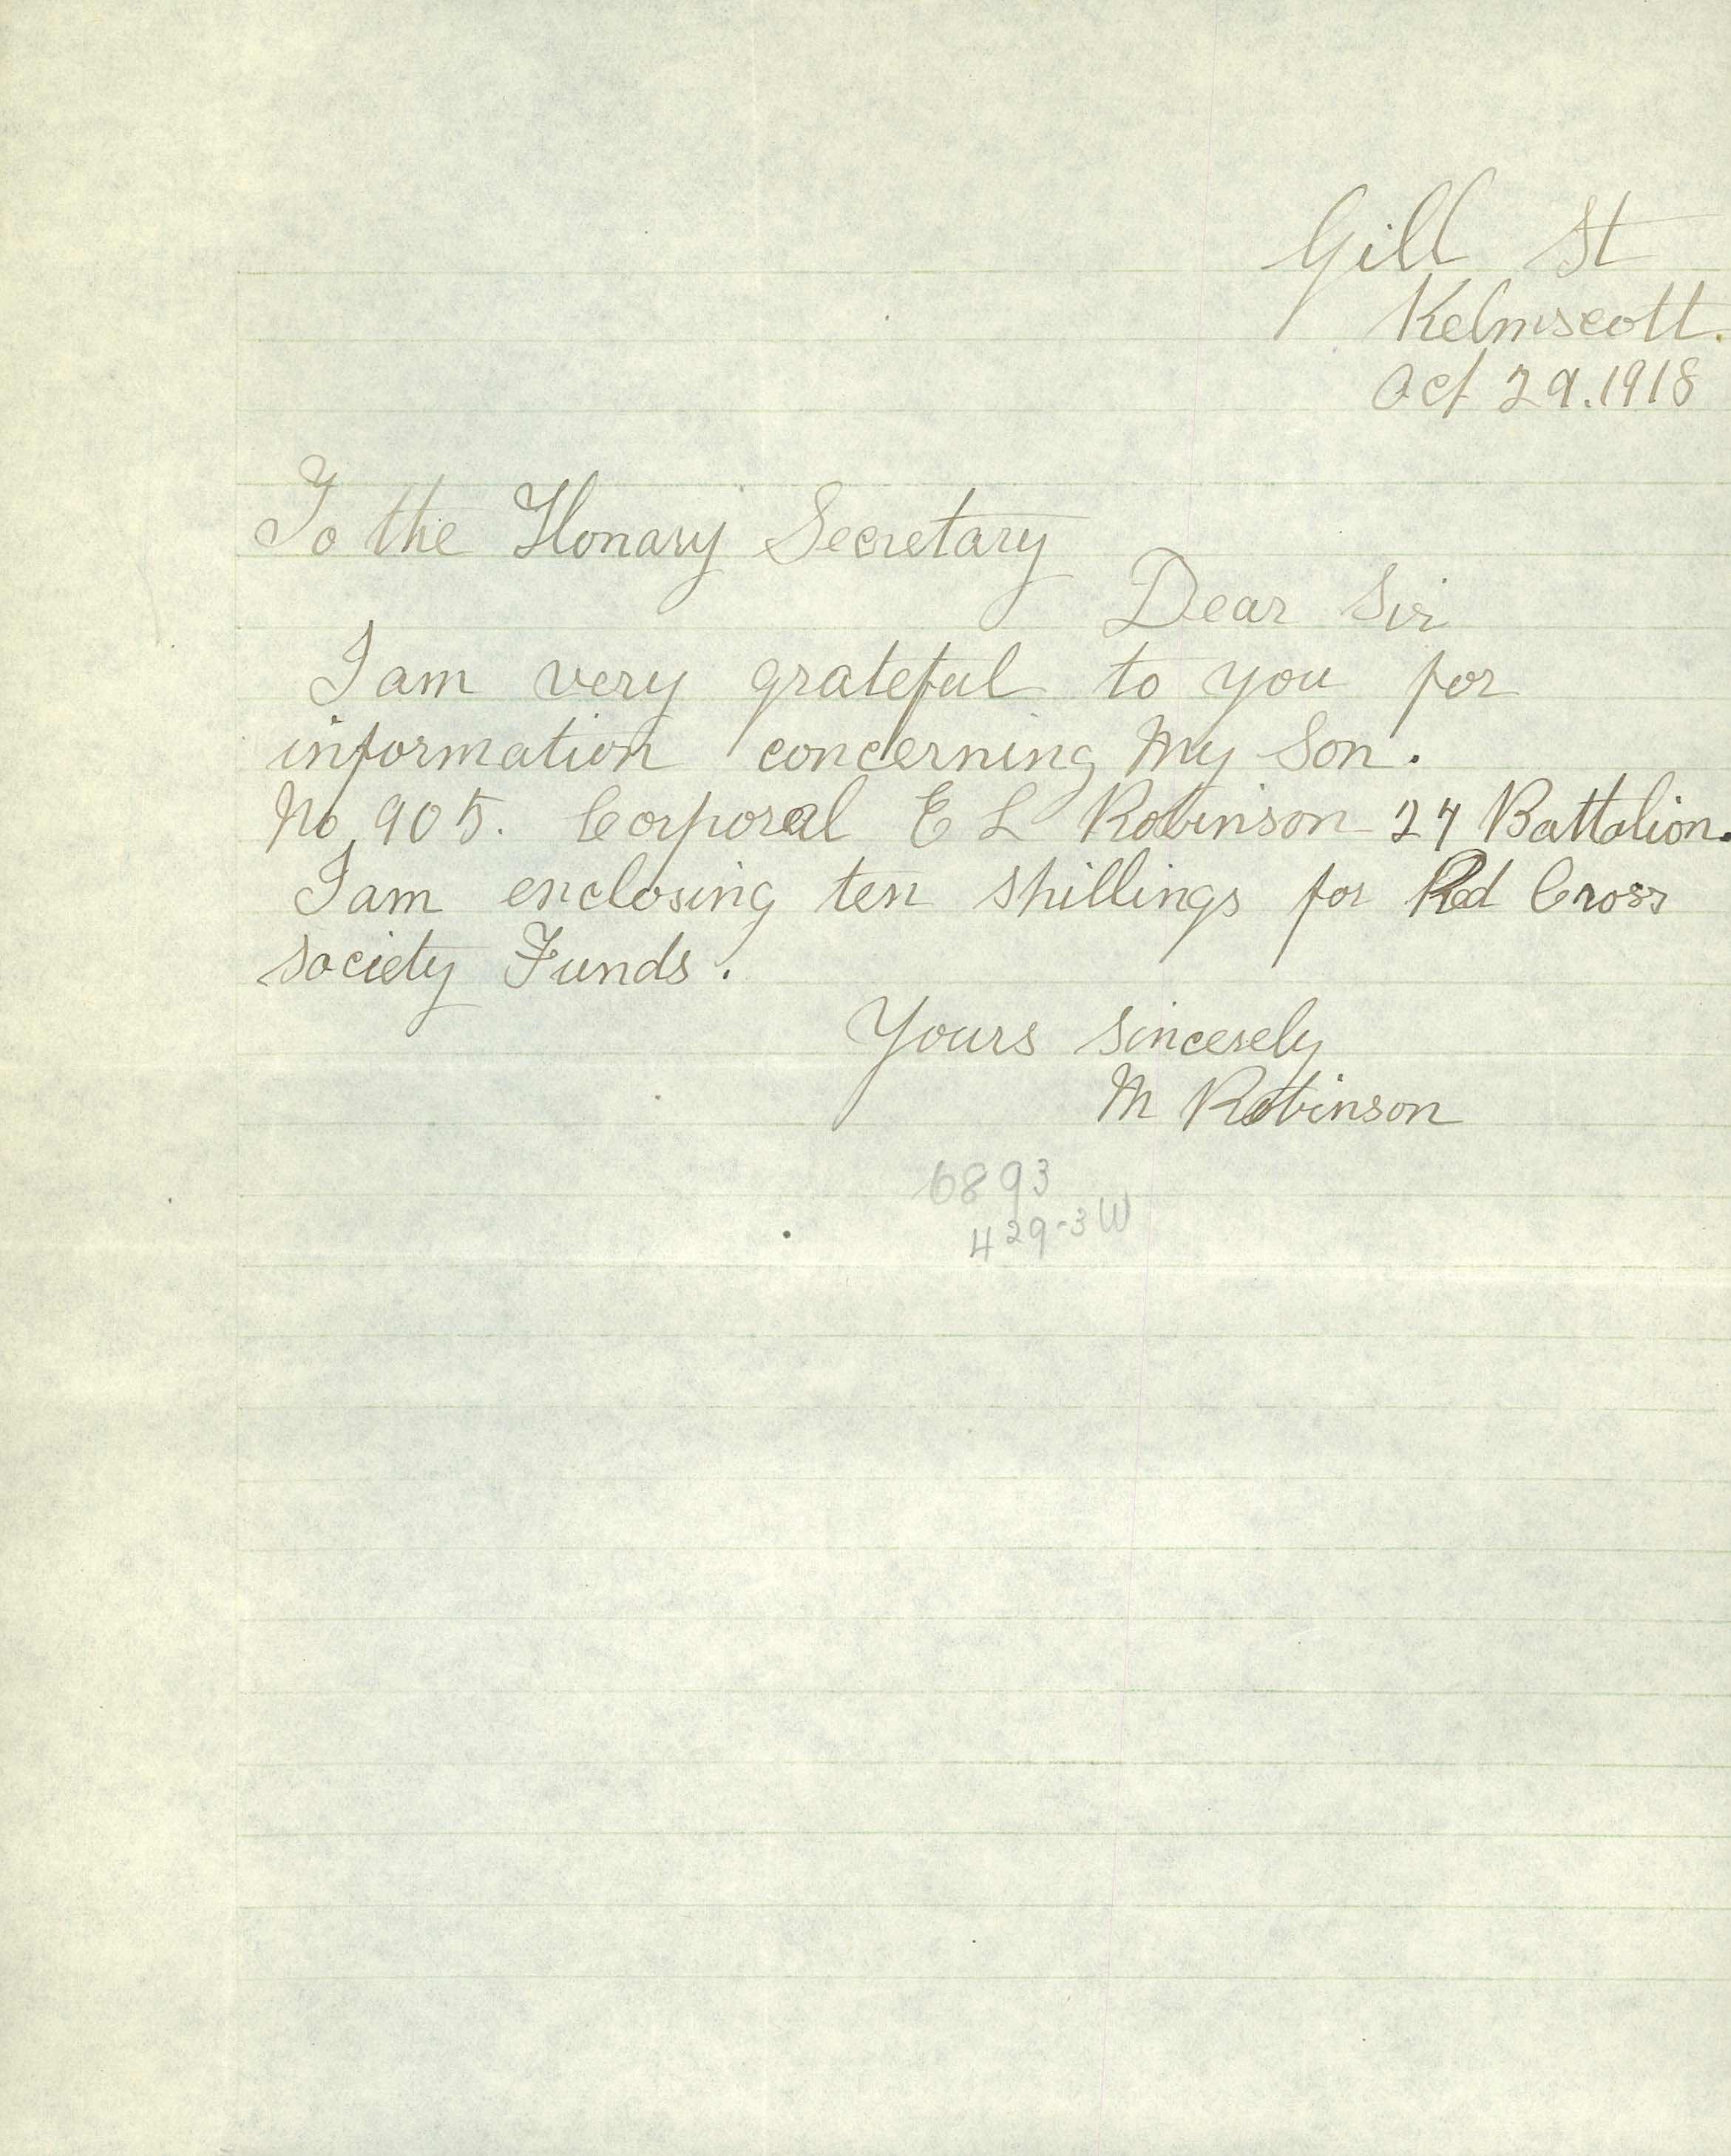 Gill St
Kelmscott.
Oct 29.1918
To the Honary Secretary
Dear Sir
I am very grateful to you for
information concerning My Son.
No 905. Corporal E L Robinson 27 Battalion.
I am enclosing ten shillings for Red Cross
Society Funds.
Yours Sincerely
M Robinson
6893
429-3W